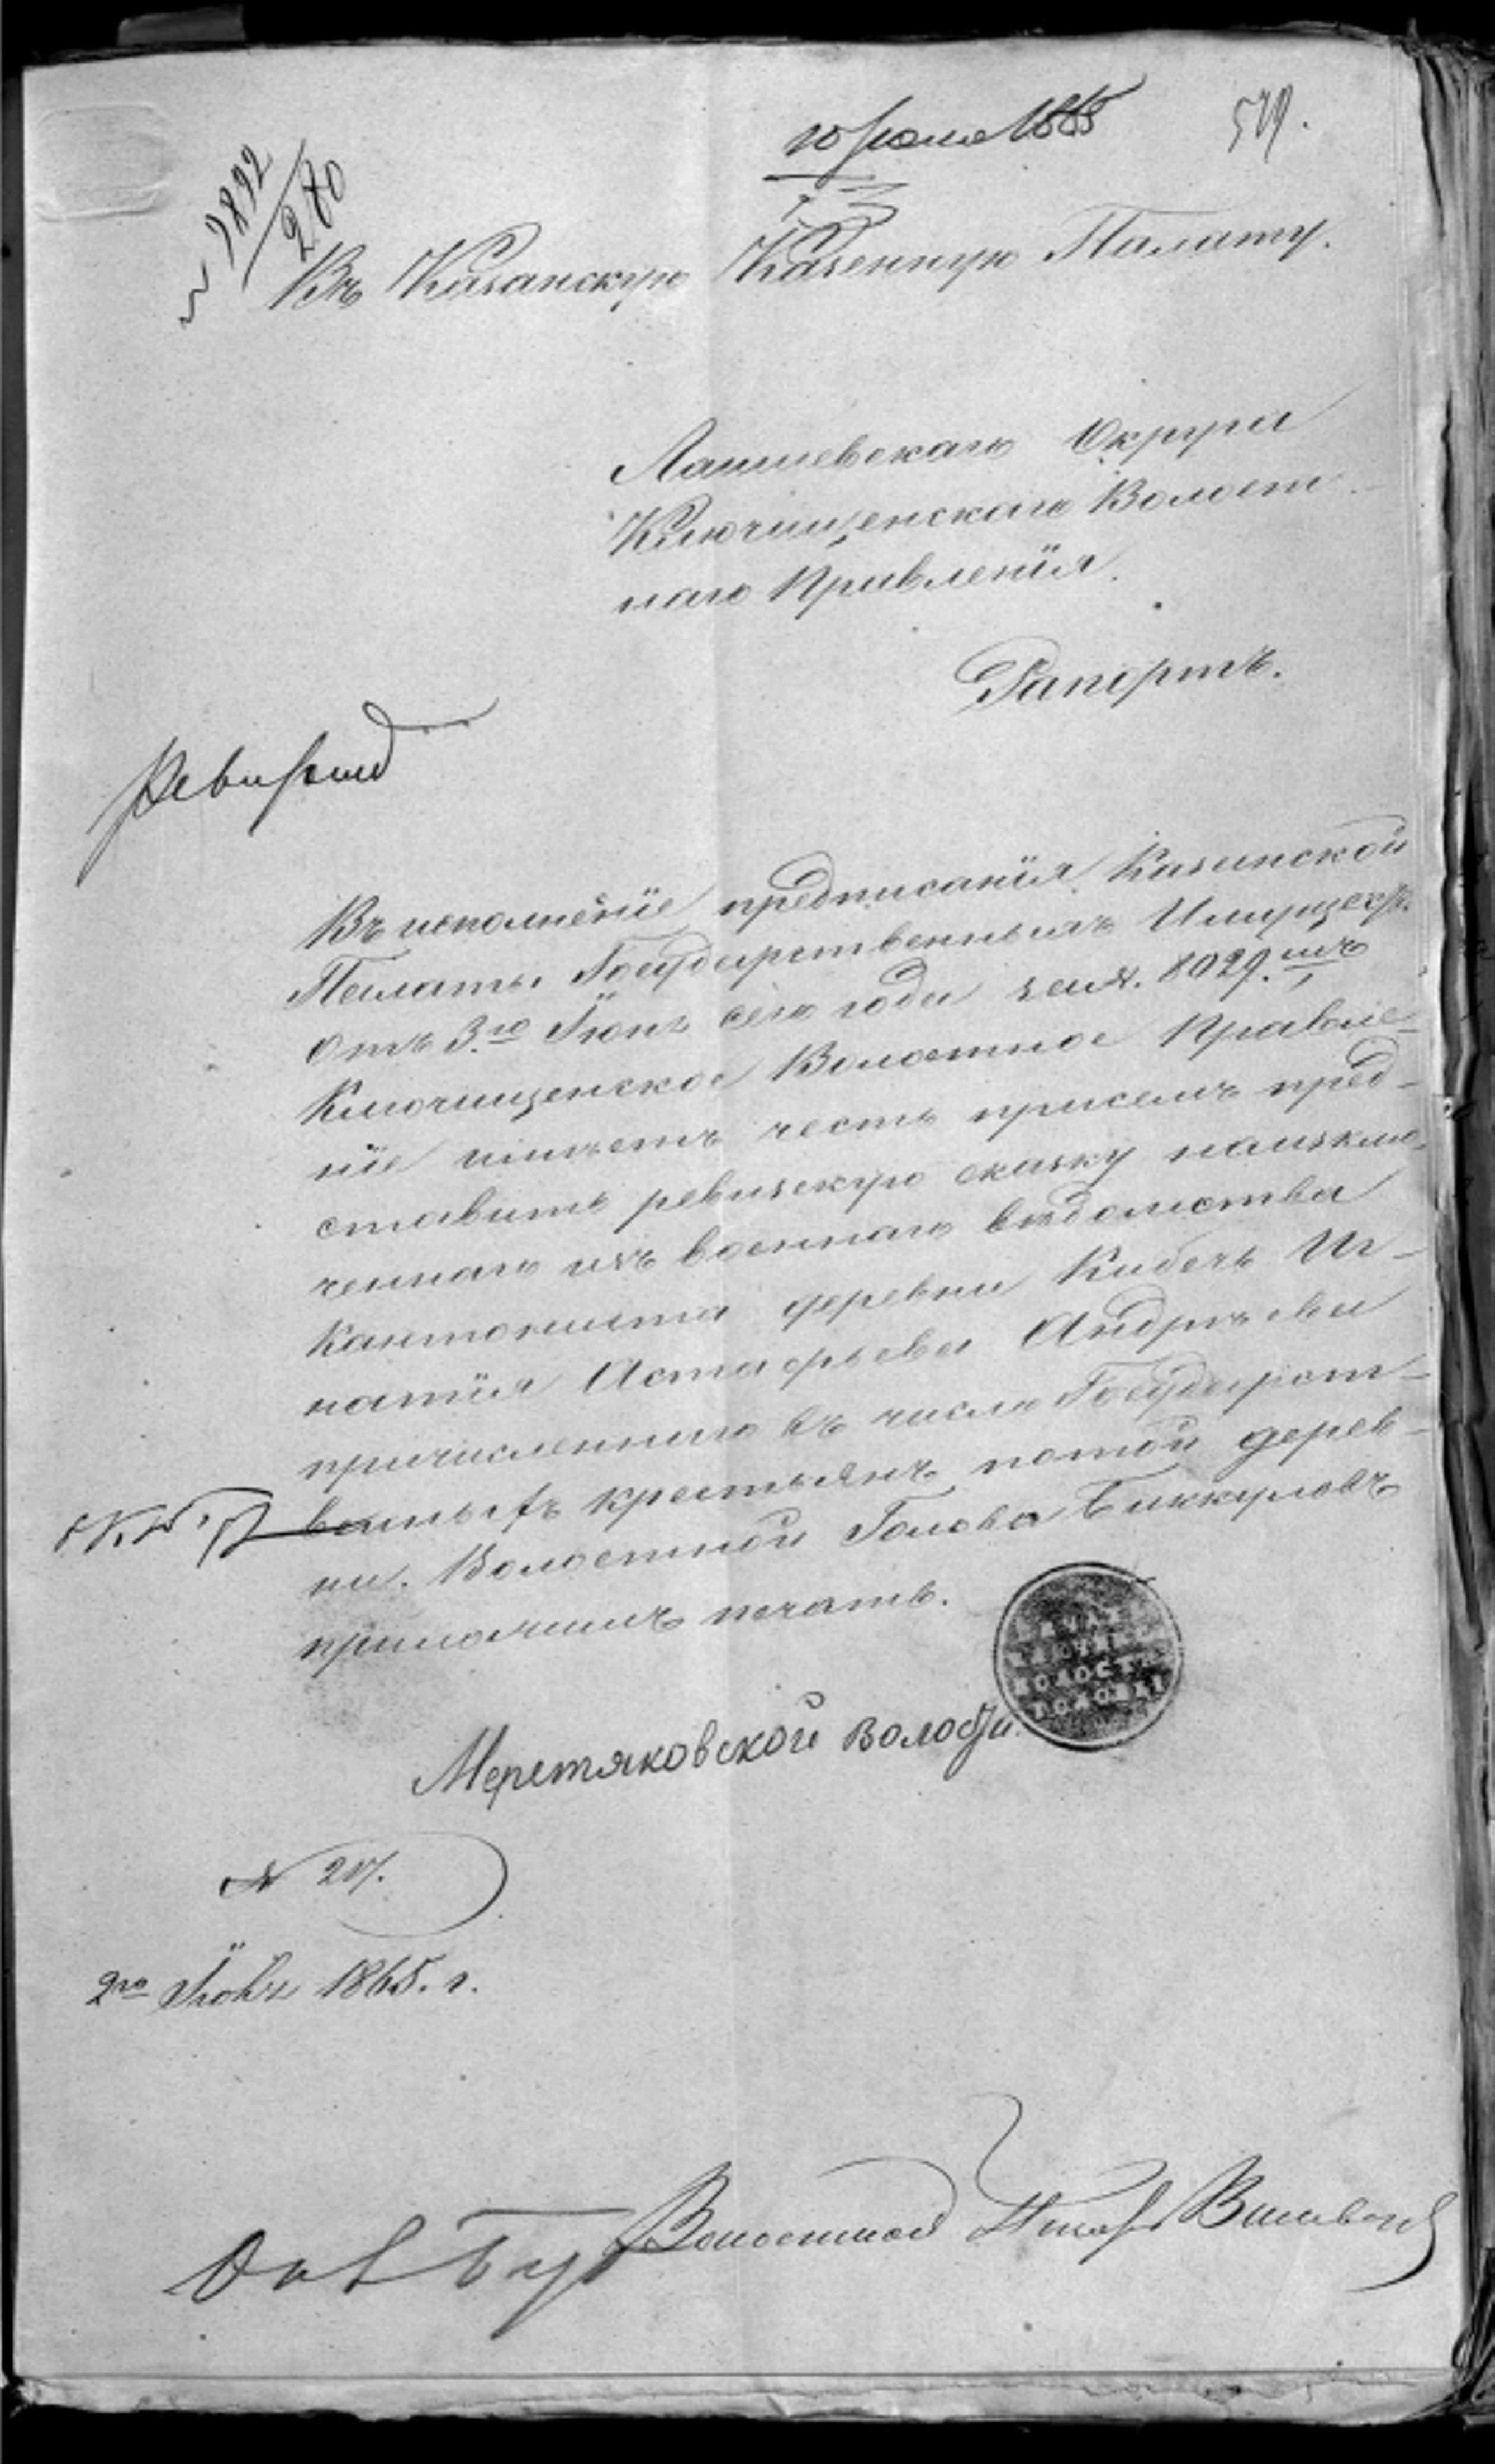 10 Июня 1865
519.
№ 7892/280
Въ Казанскую Казенную Палату.
Лаишевскаго Округа
Ключищенскаго Волост-
наго Правленія.
Рапортъ.
Въ исполненіе предписанія Казанской
Палаты Государственныхъ Имуществ.
Отъ 3.го Іюня сего года за №. 8029.мъ
Ключищенское Волостное Правле-
ніе имѣетъ честь присемъ пред-
ставить ревизскую сказку наизклю-
ченнаго изъ военнаго вѣдомства
Кантониста деревни Кибечь Иг-
натія Астафьева Андрѣева
причисленнаго въ число Государст-
венныхъ крестьянъ потой дерев-
ни. Волостной Голова Биккуловъ
приложилъ печать.
ВОЛОСТН
ГОЛОВЫ
Меретяковской волости
№ 207.
1865. г.
Волостной Писарь